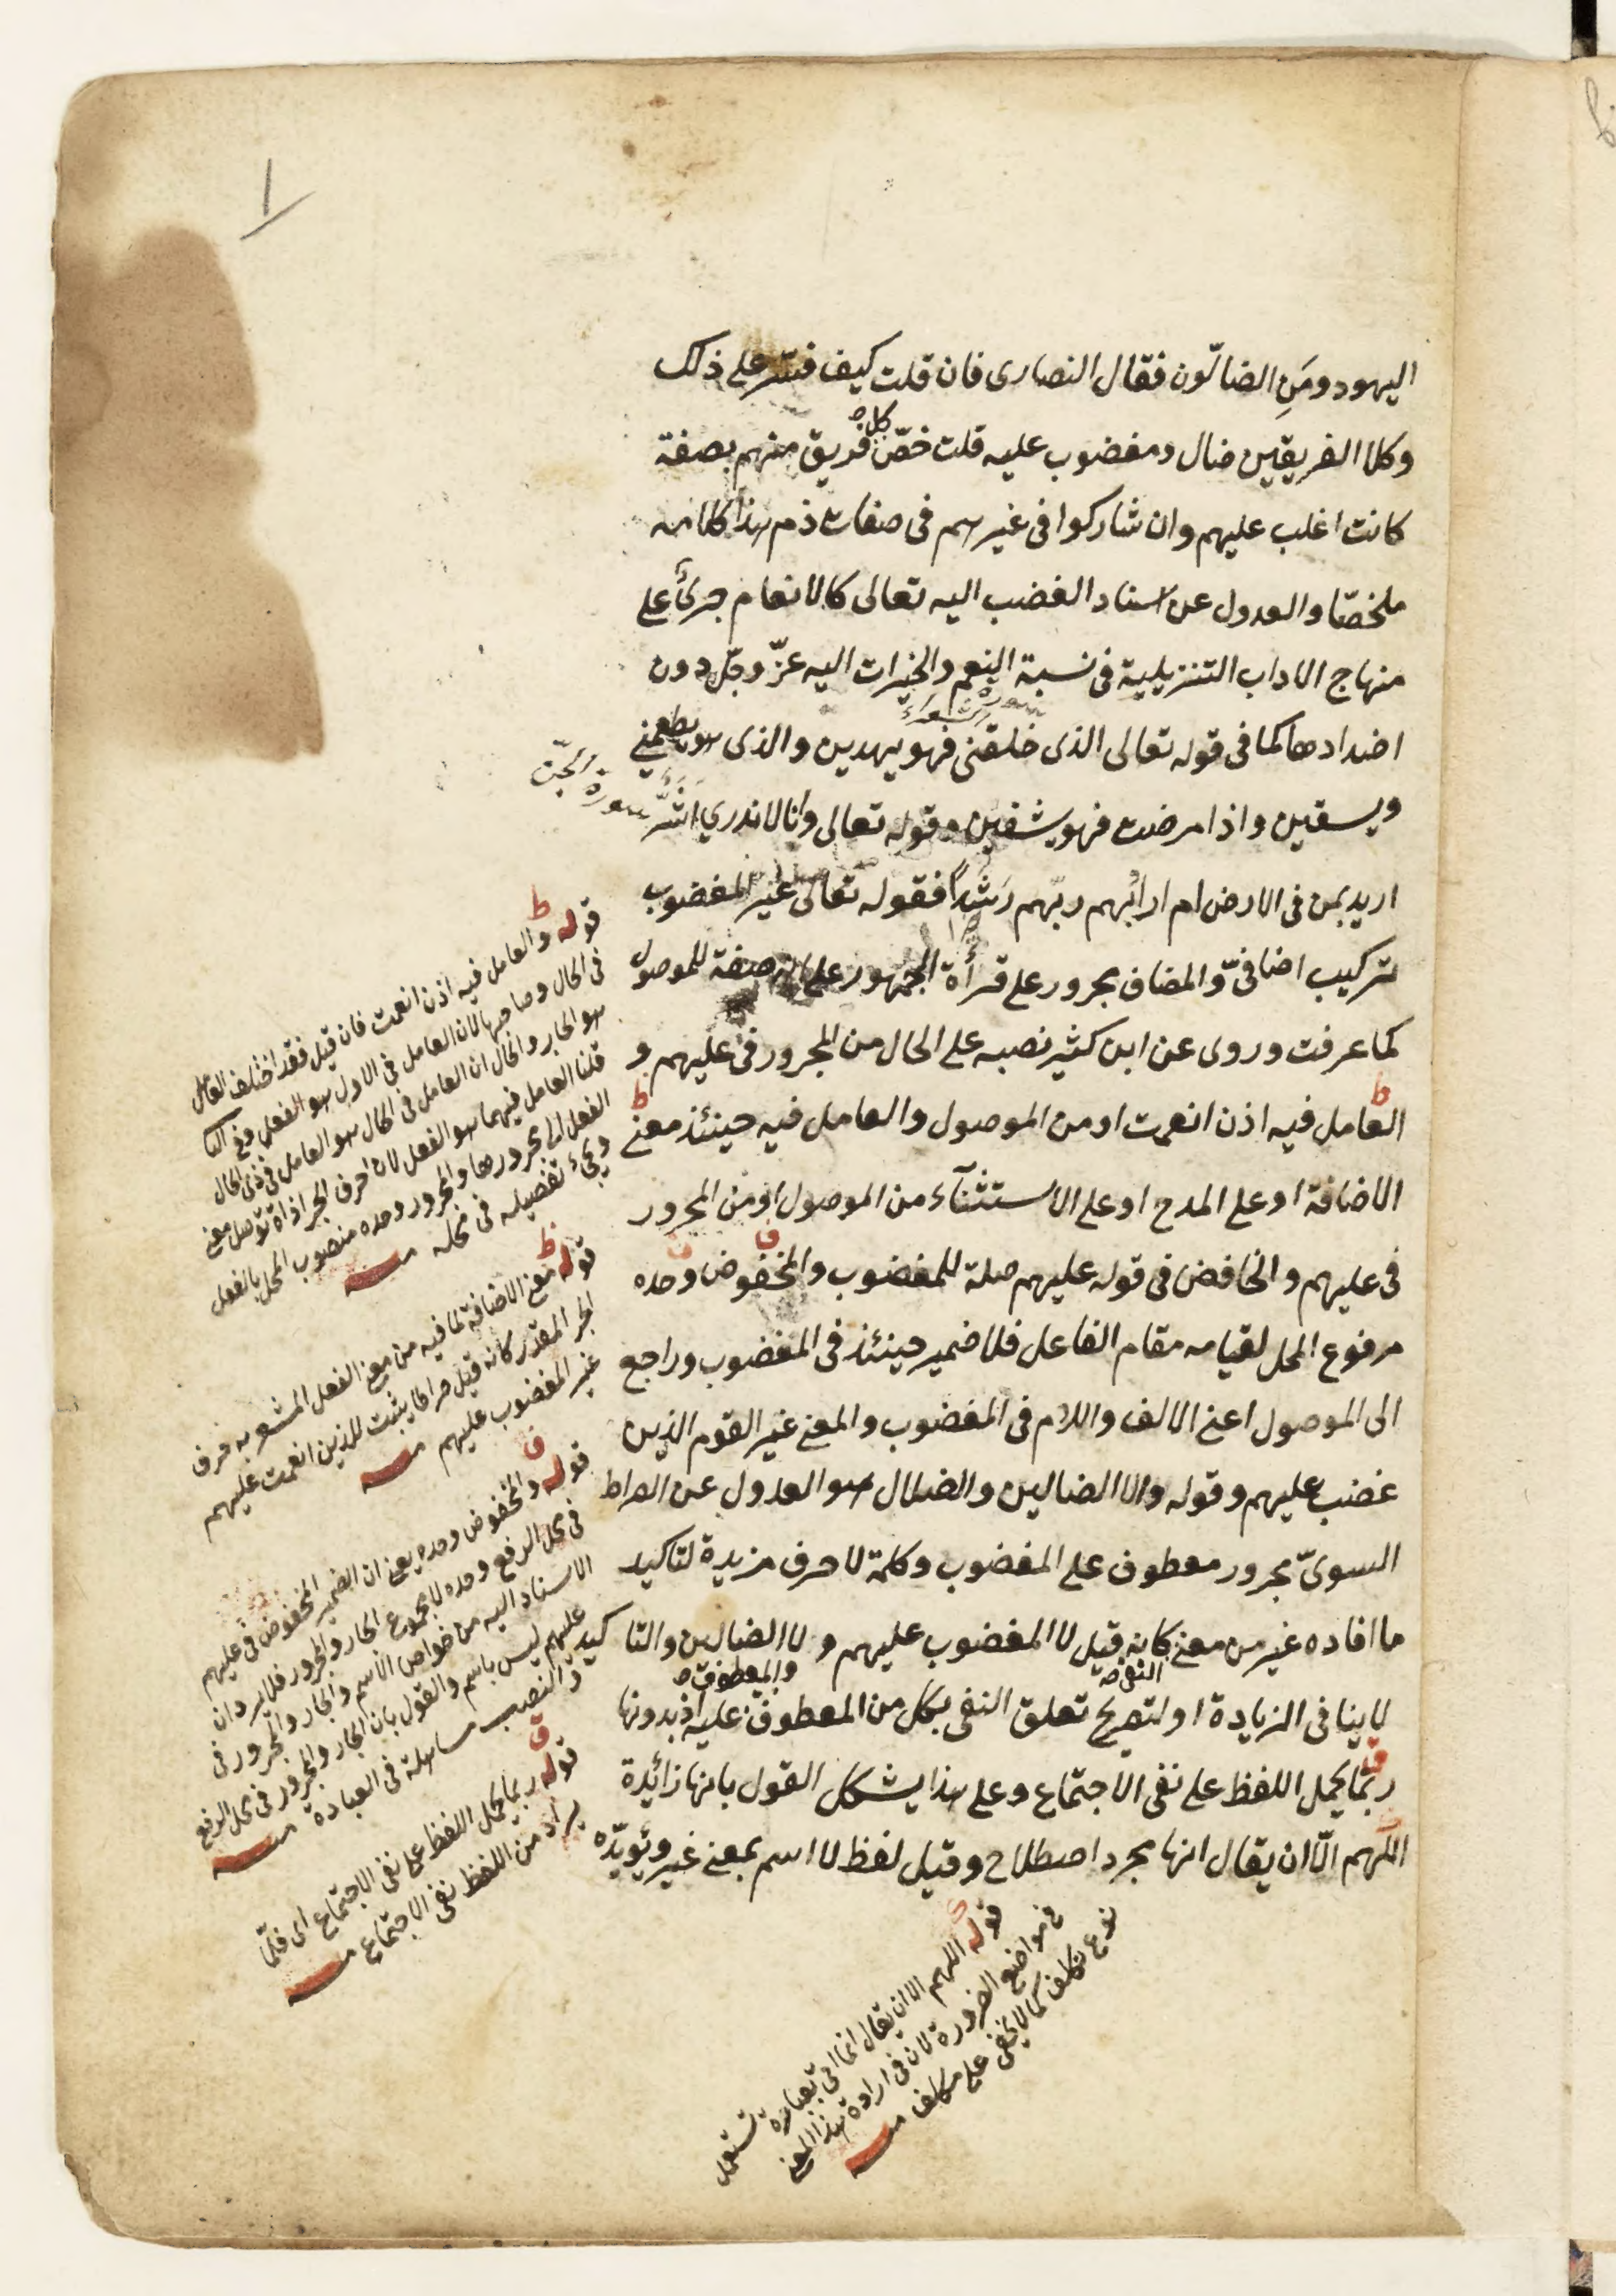 ١
اليهود ومَنِ الضالّون فقال النصارى فان قلت كيف فسّر على ذلك
وكلا الفريقين ضال ومغضوب عليه قلت خصّ كل فريق منهم بصفة
كانت اغلب عليهم وان شاركوا فى غيرهم فى صفات ذم هذا كلامه
ملخصّا والعدول عن اسناد الغضب اليه تعالى كالانعام جرىٌ على
منهاج الاداب التنزيلية فى نسبة النعم والخيرات اليه عزّ وجّل دون
اضدادها كما فى قوله تعالى الذى خلقنى فهو يهدين والذى هو يطعمنى
سورة الشعراء
ويسقين واذا مرضت فهو يشفين وقوله تعالى وانا لا ندري اَشَرٌّ
سورة الجن
اريد بمن فى الارض ام اراد بهم ربّهم رَشَداً فقوله تعالى غير المغضوب
تركيب اضافىّ والمضاف مجرور على قرأة الجمهور على انه صفة للموصول
كما عرفت وروى عن ابن كثير نصبه على الحال من المجرور فى عليهم و
العامل فيه اذن انعمت او من الموصول والعامل فيه حينئذ معنى
الاضافة او على المدح او على الاستثنآء من الموصول او من المجرور
فى عليهم والخافض فى قوله عليهم صلة للمغضوب والمخفوض وحده
مرفوع المحل لقيامه مقام الفاعل فلا ضمير حينئذ فى المغضوب وراجع
الى الموصول اعنى الالف واللام فى المغضوب والمعنى غير القوم الذين
غضب عليهم وقوله ولا الضالين والضلال هو العدول عن الصراط
السوىّ مجرور معطوف على المغضوب وكلمة لا حرف مزيدة لتاكيد
ما افاده غير من معنى النفى كانه قيل لا المغضوب عليهم ولا الضالين والتاكيد
لا ينافى الزيادة او لتصريح تعلق النفى بكل من المعطوف والمعطوف عليه اذ بدونها
ربما يحمل اللفظ على نفى الاجتماع وعلى هذا يشكل القول بانها زائدة
اللّهم الّا ان يقال انها مجرد اصطلاح وقيل لفظ لا اسم بمعنى غير ويؤيّده
قوله والعامل فيه اذن انعمت فان قيل فقد اختلف العامل
فى الحال وصاحبها لان العامل فى الاول هو الفعل وفى الثا
هو الجار والحال ان العامل فى الحال هو العامل فى ذى الحال
قلنا العامل فيهما هو الفعل لان حرف الجر اداة توصل معنى
الفعل الى مجرورها والمجرور وحده منصوب المحل بالفعل
ويجىء تفصيله فى محله منه
قوله معنى الاضافة لما فيه من معنى الفعل المشعر به حرف
الجر المقدر كانه قيل صراطا يثبت للذين انعمت عليهم
غير المغضوب عليهم منه
قوله والمخفوض وحده يعنى ان الضمير المخفوض فى عليهم
فى محل الرفع وحده لا مجموع الجار والمجرور فلا يرد ان
الاسناد اليه من خواص الاسم والجار والمجرور فى
عليهم ليس باسم والقول بان الجار والمجرور فى محل الرفع
والنصب مساهلة فى العبارة منه
قوله ربما يحمل اللفظ على نفى الاجتماع اى قلّما
يراد من اللفظ نفى الاجتماع منه
قوله اللهم الا ان يقال تستعمل
فى مواضع الضرورة لان فى ارادة هذا المعنى
نوع تكلف كما لا يخفى على منه